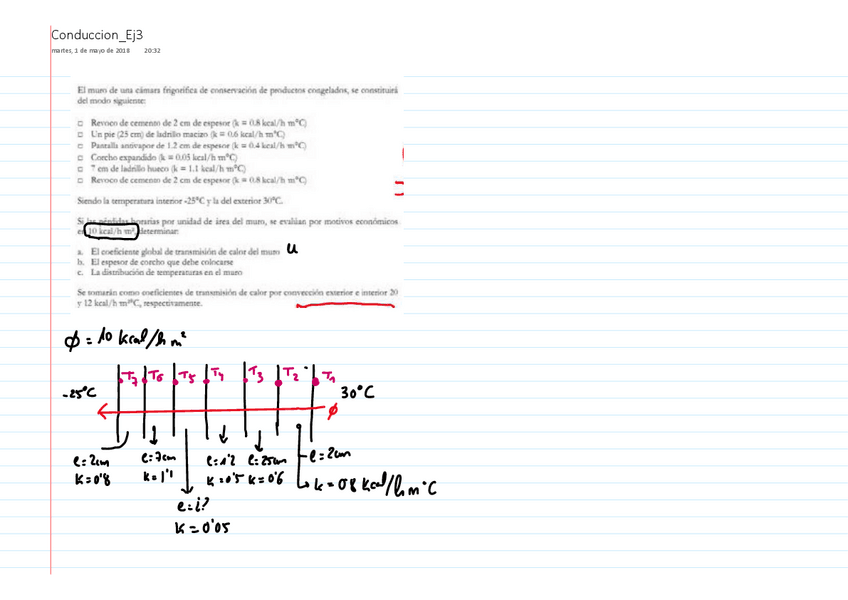 Conduccion_Ej3
martes, 1 de mayo de 2018 20:32
El muro de una cámara frigorífica de conservación de productos congelados, se constituirá
del modo siguiente:
□ Revoco de cemento de 2 cm de espesor (k = 0.8 kcal/h m°C)
□ Un pie (25 cm) de ladrillo macizo (k = 0.6 kcal/h m°C)
□ Pantalla antivapor de 1.2 cm de espesor (k = 0.4 kcal/h m°C)
□ Corcho expandido (k = 0.05 kcal/h m°C)
□ 7 cm de ladrillo hueco (k = 1.1 kcal/h m°C)
□ Revoco de cemento de 2 cm de espesor (k = 0.8 kcal/h m°C)
Siendo la temperatura interior -25°C y la del exterior 30°C.
Si las pérdidas horarias por unidad de área del muro, se evalúan por motivos económicos
en 10 kcal/h m², determinar:
a. El coeficiente global de transmisión de calor del muro u
b. El espesor de corcho que debe colocarse
c. La distribución de temperaturas en el muro
Se tomarán como coeficientes de transmisión de calor por convección exterior e interior 20
y 12 kcal/h m²°C, respectivamente.
ϕ = 10 kcal/h m²
T7 T6 T5 T4 T3 T2 T1
-25°C 30°C
ϕ
e=2cm e=7cm e=1'2 e=25cm e=2cm
k=0'8 k=1'1 k=0'5 k=0'6 k=08 kcal/hm°C
e=¿?
k=0'05